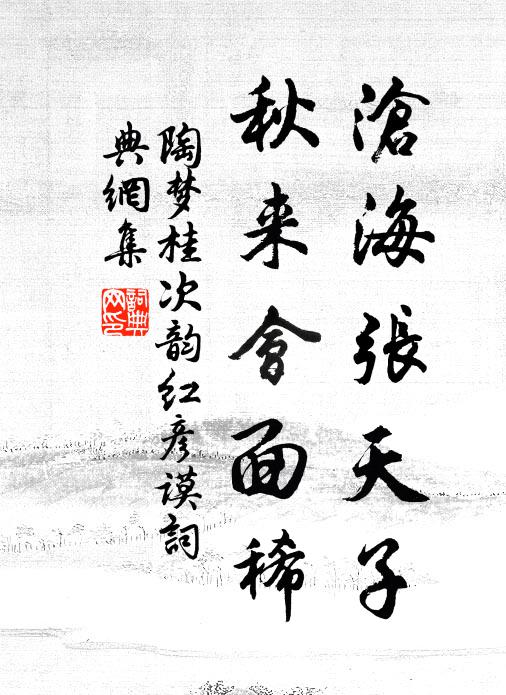 滄海張天子
秋来會面稀
陶梦桂次韵红彦谟詞
典網集
詞典
网印